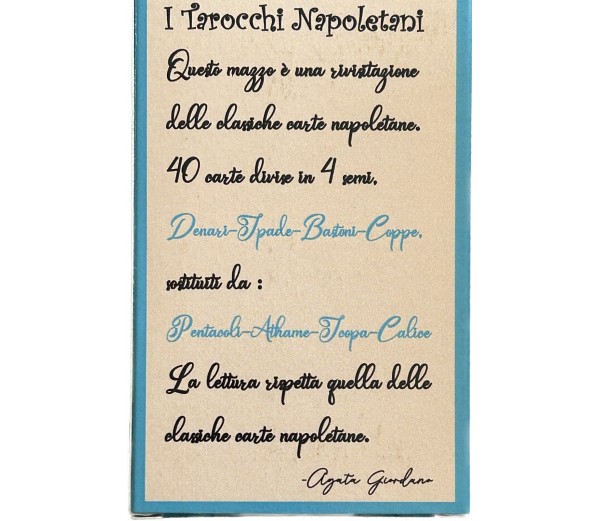 I Tarocchi Napoletani
Questo mazzo è una rivisitazione
delle classiche carte napoletane.
40 carte divise in 4 semi,
Denari-Spade-Bastoni-Coppe,
sostituiti da :
Pentacoli-Athame-Scopa-Calice
La lettura rispetta quella delle
classiche carte napoletane.
-Agata Giordano